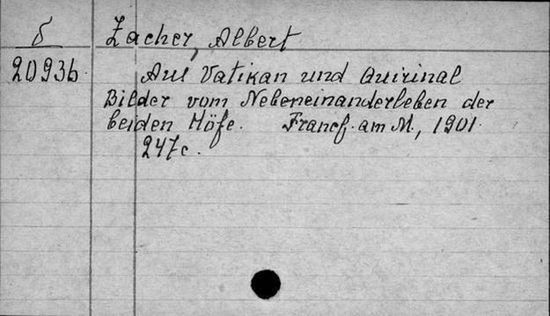 δ Zacher, Albert
20936. Aus Vatikan und Quirinal
Bilder vom Nebeneinanderleben der
beiden Höfe. Francf. am M., 1901.
247c.